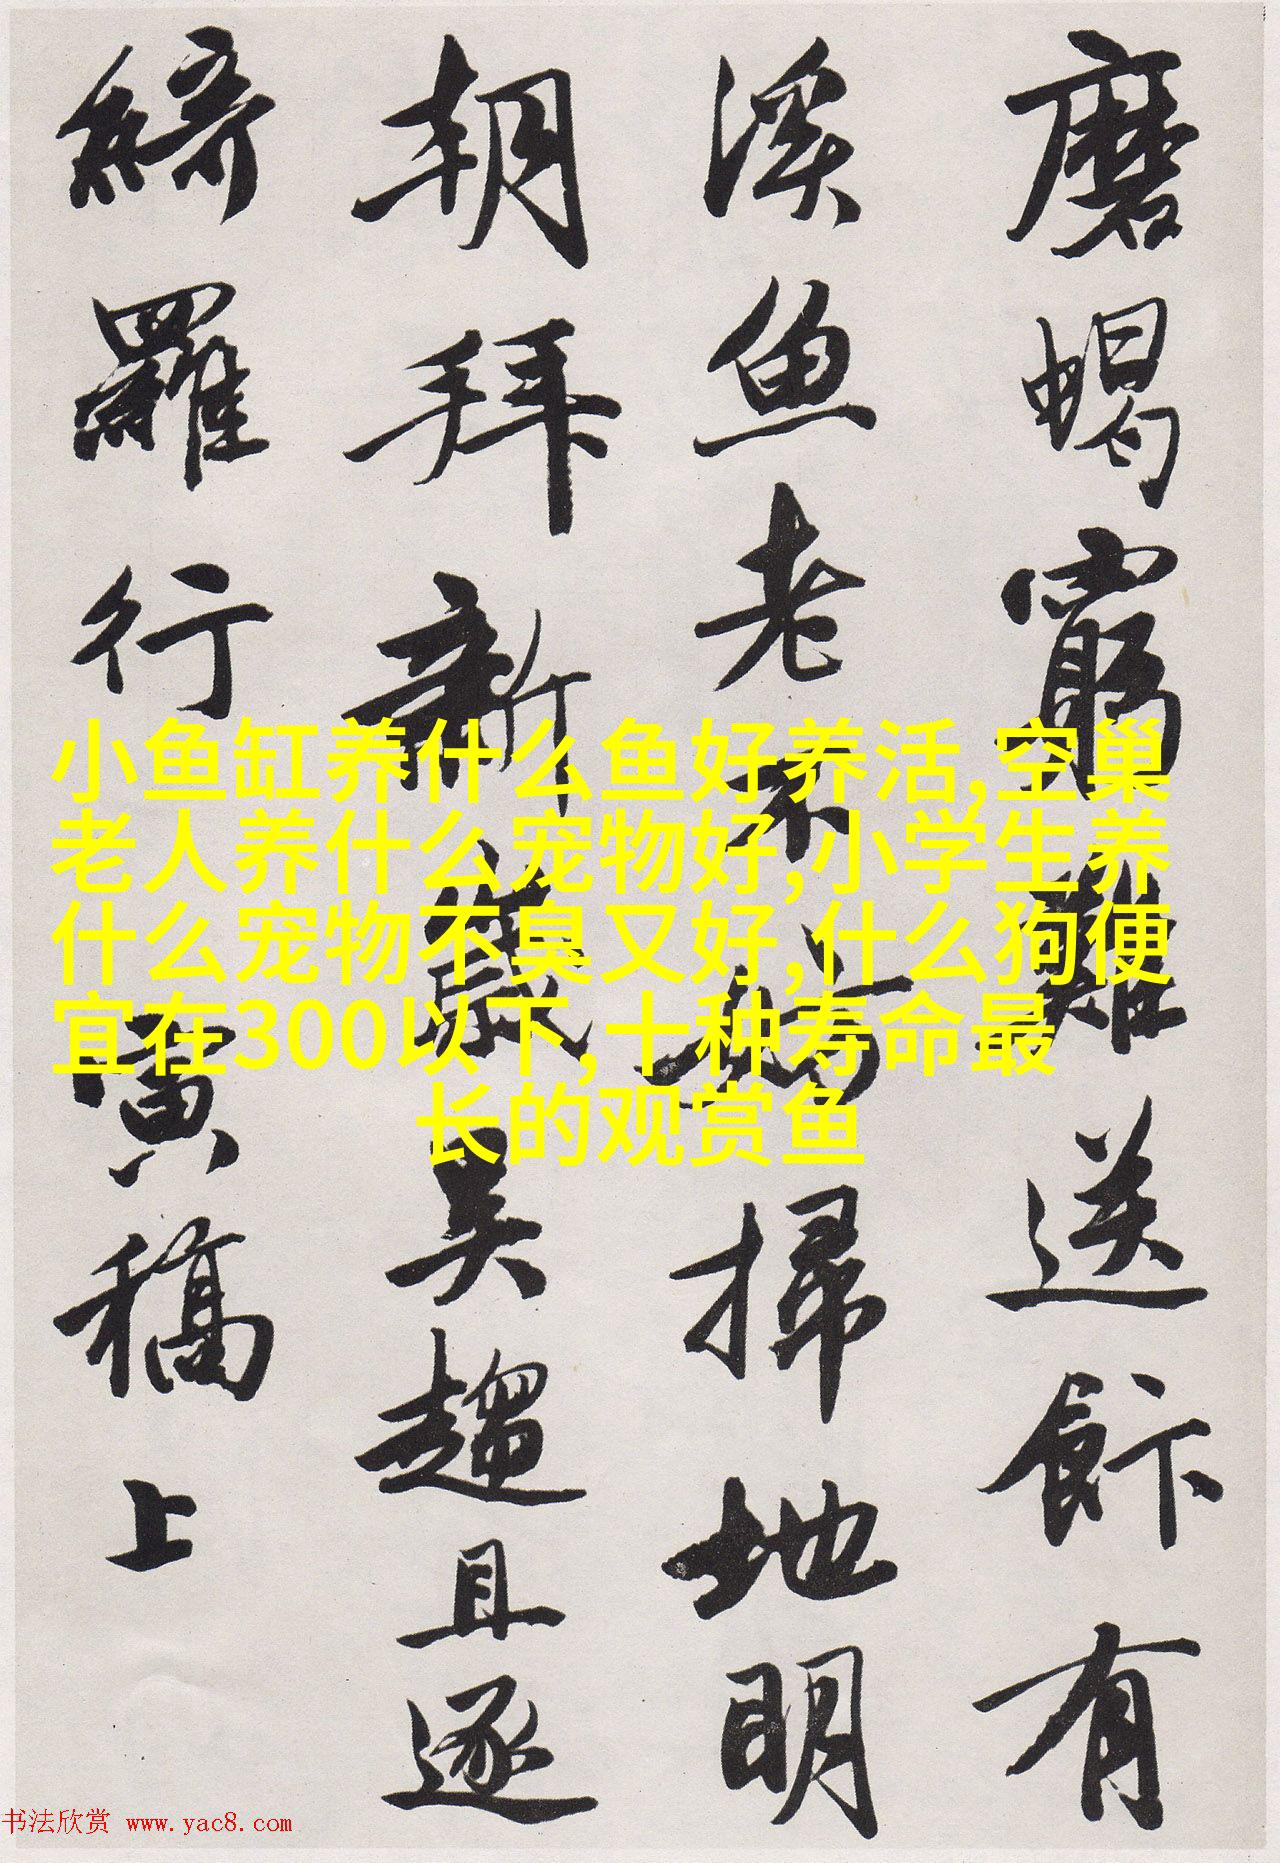 磨蝎窮難送飰有
溪鱼老不妨掃地明
朝拜新歲吴趨且逐
綺羅行
寅稿上
小鱼缸养什么鱼好养活,空巢
老人养什么宠物好,小学生养
什么宠物不臭又好,什么狗便
宜在300以下,十种寿命最
长的观赏鱼
书法欣赏 www.yac8.com